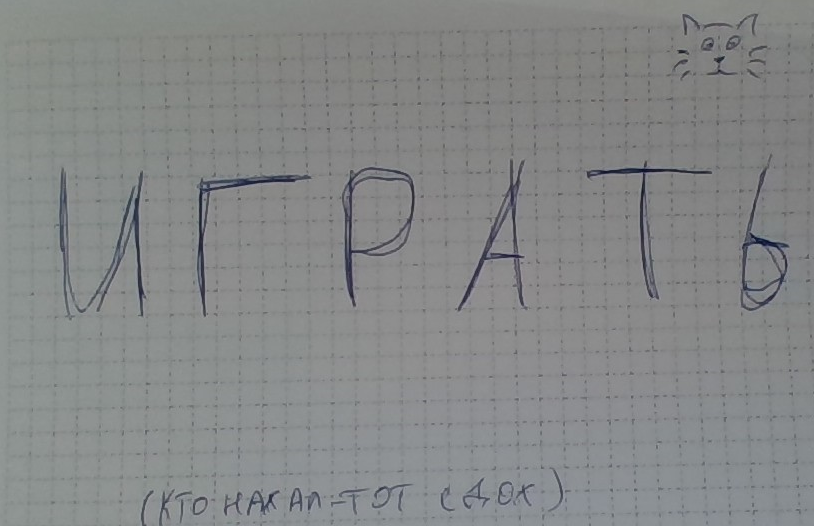 ИГРАТЬ
(КТО НАЖАЛ-ТОТ СДОХ)